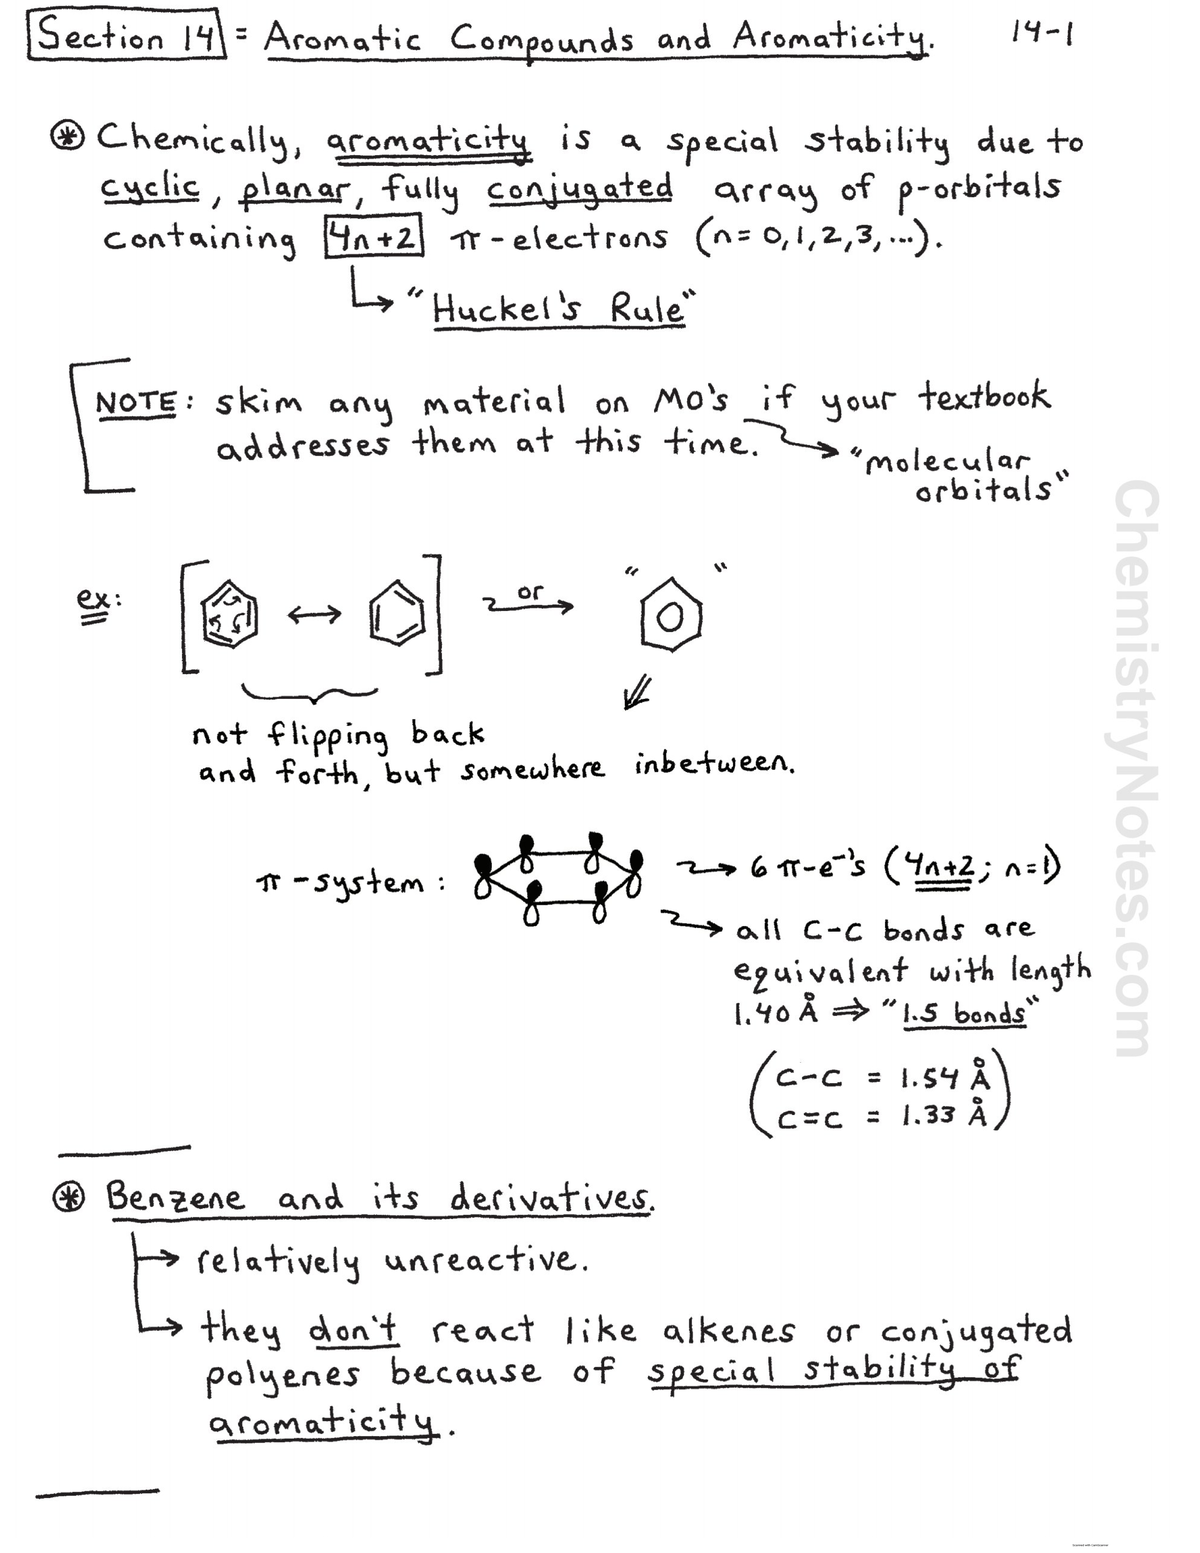 Section 14 = Aromatic Compounds and Aromaticity. 14-1
⊛ Chemically, aromaticity is a special stability due to
cyclic, planar, fully conjugated array of p-orbitals
containing 4n+2 π-electrons (n=0,1,2,3,...).
↳ "Huckel's Rule"
NOTE: skim any material on MO's if your textbook
addresses them at this time. → "molecular
orbitals"
ex: [ ↔ ] or → " "
not flipping back
and forth, but somewhere inbetween.
π-system: → 6 π-e⁻'s (4n+2; n=1)
→ all C-C bonds are
equivalent with length
1.40 Å ⇒ "1.5 bonds"
(C-C = 1.54 Å
C=C = 1.33 Å)
⊛ Benzene and its derivatives.
→ relatively unreactive.
→ they don't react like alkenes or conjugated
polyenes because of special stability of
aromaticity.
ChemistryNotes.com